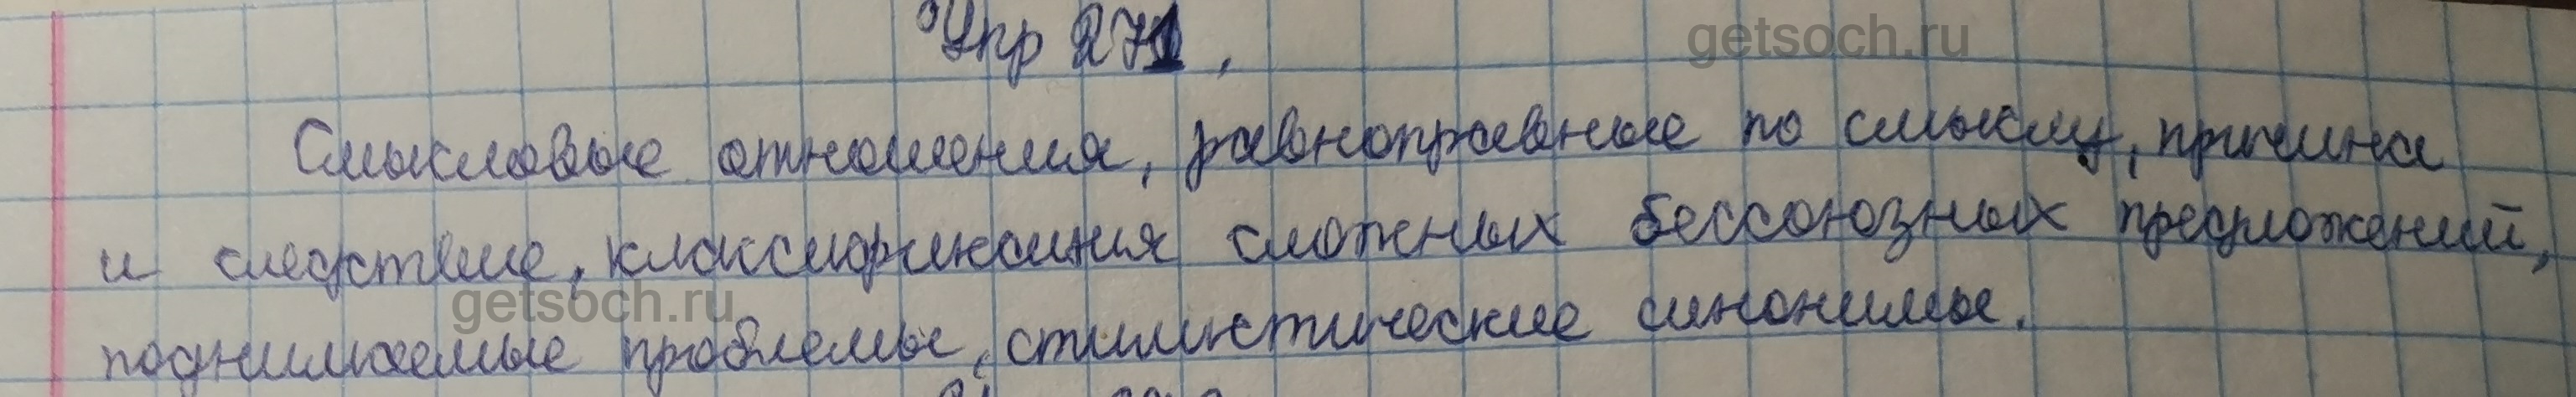 Упр 271.
getsoch.ru
Смысловые отношения, равноправные по смыслу, причина
и следствие, классификация сложных бессоюзных предложений,
getsoch.ru
поднимаемые проблемы, стилистические синонимы.